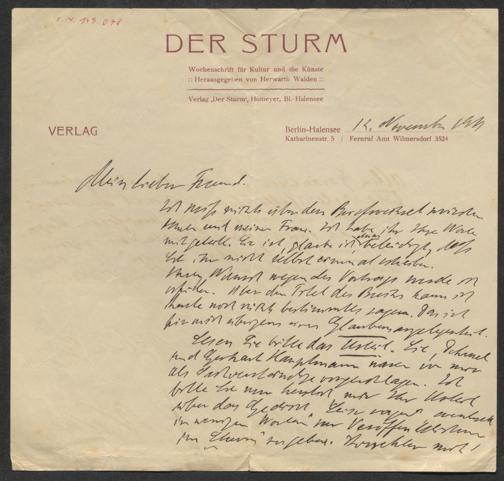 I.N. 149.078
DER STURM
Wochenschrift für Kultur und die Künste
:: Herausgegeben von Herwarth Walden ::
Verlag „Der Sturm“, Homeyer, Bl.-Halensee
VERLAG
Berlin-Halensee 12. November 191
Katharinenstr. 5 / Fernruf Amt Wilmersdorf 3524
Mein lieber Freund.
Ich weiß nichts über den Briefwechsel zwischen
Ihnen und meiner Frau. Ich habe ihr Ihre Worte
mitgeteilt. Sie ist, glaube ich, etwas beleidigt, daß
Sie ihr nicht selbst einmal schreiben.
Ihren Wunsch wegen des Vortrags werde ich
erfüllen. Über den Titel des Buches kann ich
heute noch nichts bestimmtes sagen. Das ist
für mich übrigens eine Glaubensangelegenheit.
Lesen Sie bitte das Urteil. Sie, Dehmel
und Gerhart Hauptmann waren von mir
als Sachverständige vorgeschlagen. Ich
bitte Sie nun herzlich mir Ihr Urteil
über das Gedicht „Leise sagen“
in wenigen Worten zur Veröffentlichung
im „Sturm“ mich!